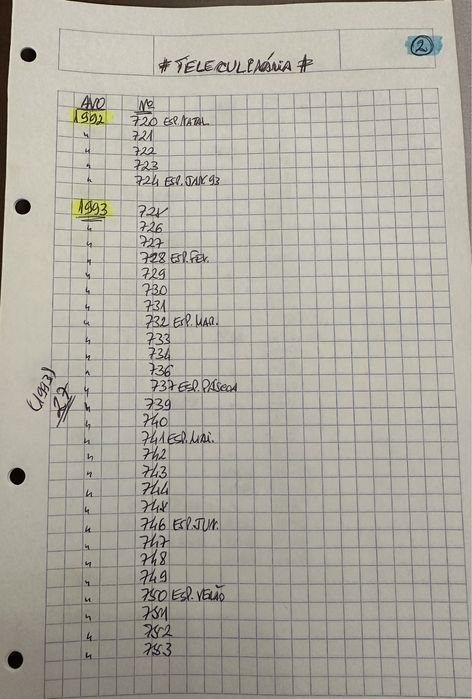 2
# TELECULINÁRIA #
ANO Nº
1992 720 ESP.NATAL
" 721
" 722
" 723
" 724 ESP. JAN 93
1993 725
" 726
" 727
" 728 ESP. FEV.
" 729
" 730
" 731
" 732 ESP. MAR.
" 733
" 734
" 736
" 737 ESP. PÁSCOA
" 739
" 740
" 741 ESP. MAI.
" 742
" 743
" 744
" 745
" 746 ESP. JUN.
" 747
" 748
" 749
" 750 ESP. VERÃO
" 751
" 752
" 753
(1993)
27